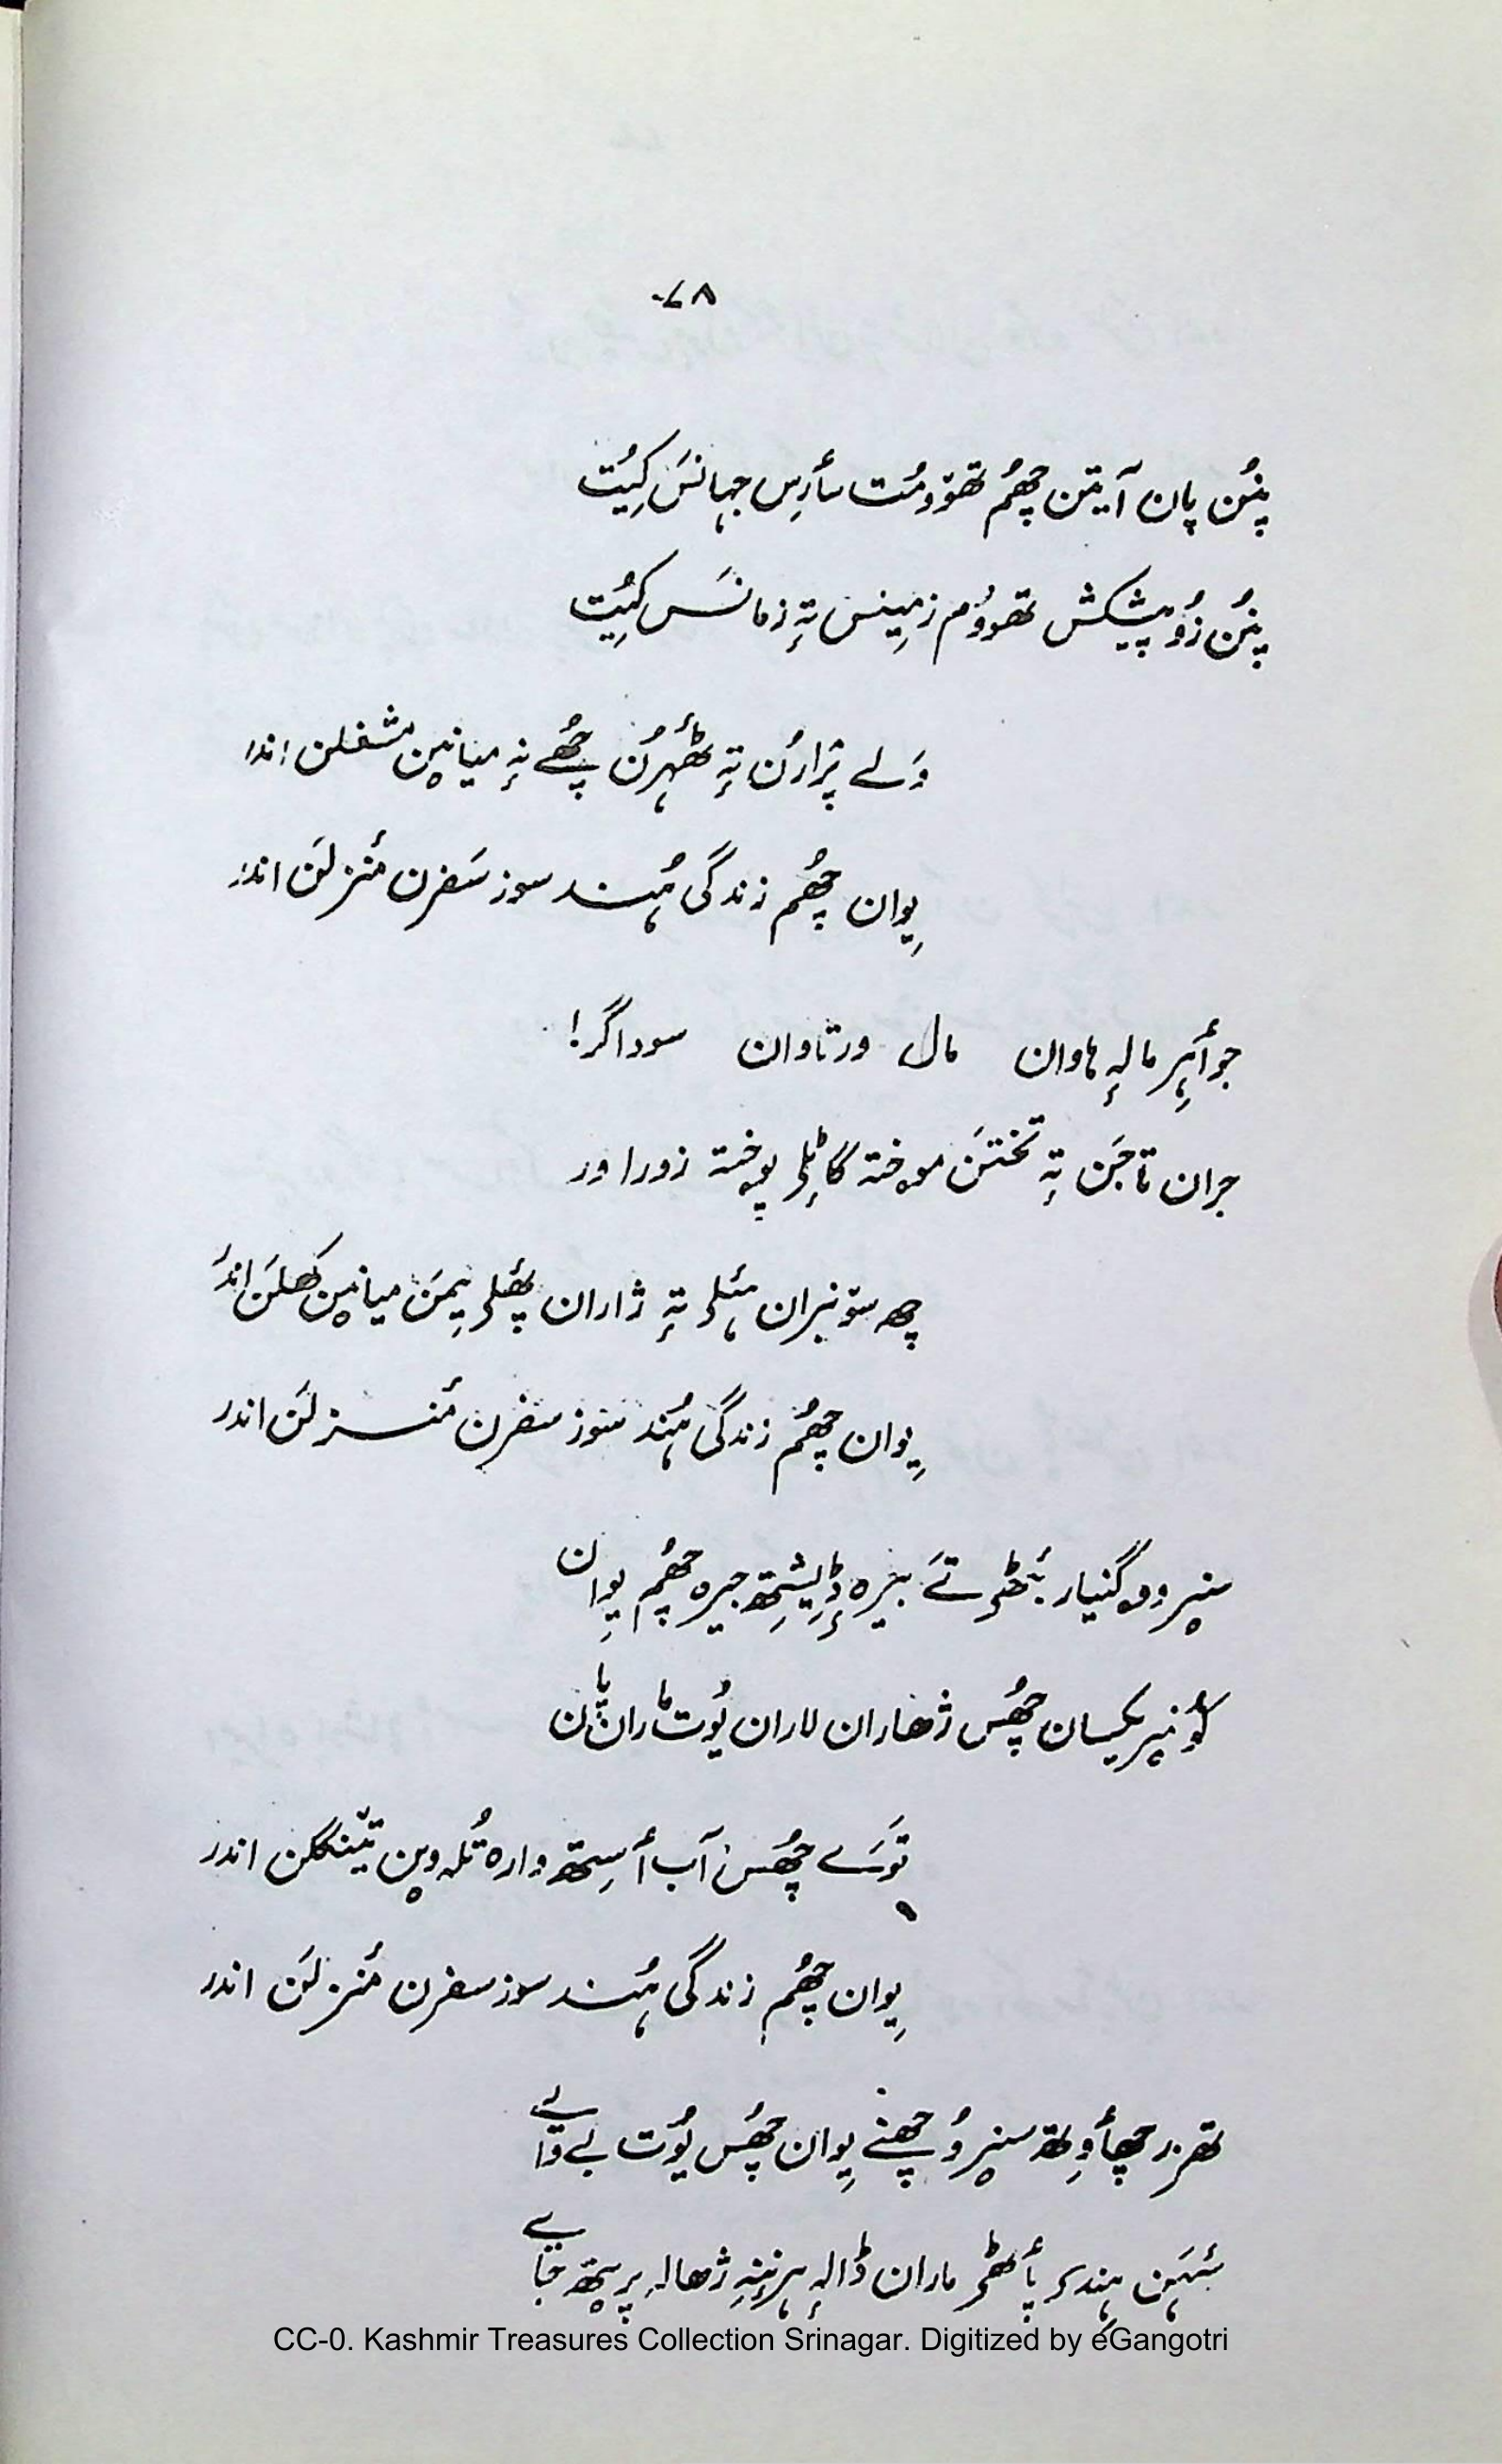 ۷۸
پنُن پان آیتن چھُم تھوومُت سأرِس جہانَس کیُت
پنُن زُو پیشکش تھووُم زمینس تہٕ زمانَس کیُت
وَلے پرارُن تہٕ ٹھٔہرُن چھُے نہٕ میانین مشغلن اندر
یِوان چھُم زندگی ہُند سوز سَفرن مٔنزلَن اندر
جوأہر مالہٕ ہاوان مال ورتاوان سوداگر!
جران تاجَن تہٕ تختَن موختہ گاٹلۍ پوختہ زوراور
چھہ سۆنبران ۂلۍ تہٕ ژاران پھٔلۍ یِمَن میانین کھلَن اندر
یِوان چھُم زندگی ہُند سوز سفرن مٔنزلَن اندر
سنیرووگنیار بٔٹھۍ تَے بیرہ ڈیٖشِتھ جیرہ چھُم یِوان
یکسان چھُس ژھاران لاران یُوت ماران پان
توَے چھُس آب أسِتھ وارہ تُلہ وین تیٚنگلن اندر
یِوان چھُم زندگی ہُند سوز سفرن مٔنزلَن اندر
تھزر چھأوِتھ سنیرُ چھنے یِوان چھُس یُوت بے وایے
سٔہَن ہِندۍ پأٹھۍ ماران ڈالہٕ ہرنہٕ ژھالہ پرٮ۪تھ جایے
CC-0. Kashmir Treasures Collection Srinagar. Digitized by eGangotri